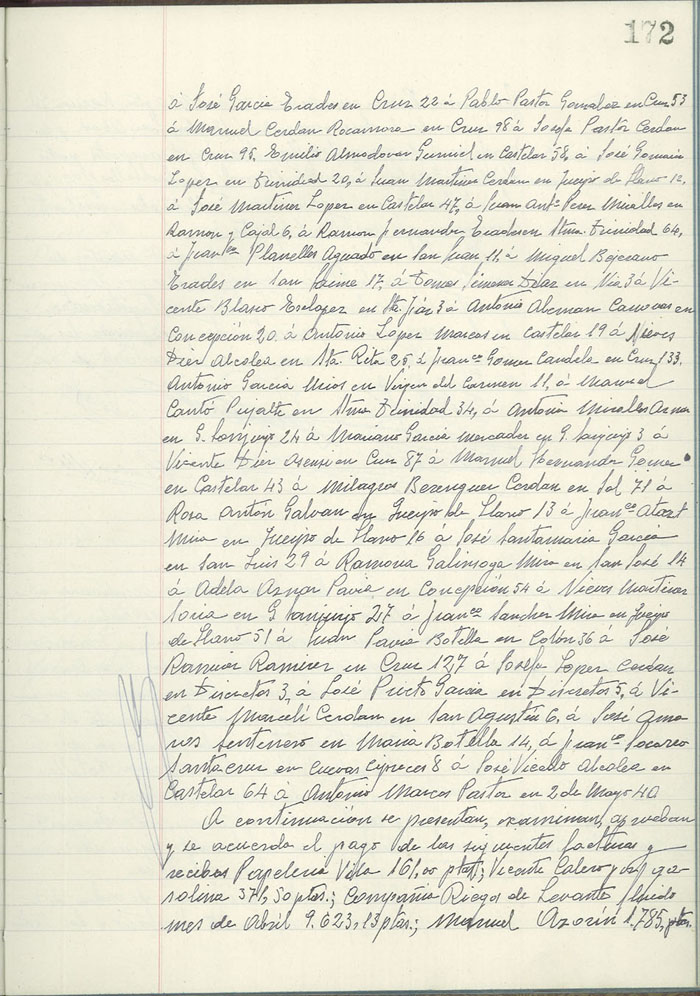 172
á José Garcia Erades en Cruz 22 á Pablo Pastor Gonzalez en Cruz 53
á Manuel Cerdan Rocamora en Cruz 98 á Josefa Pastor Cerdan
en Cruz 95, Emilio Almodovar en Castelar 58, á José
Lopez en Trinidad 20, á Juan Martinez Cerdan en Queipo de Llano
á José Martinez Lopez en Castelar 47, á Juan Antº Perez Miralles en
Ramon y Cajal 6, á Ramon Fernandez en Stma. Trinidad 64,
á Franco Planelles Aguado en San Juan 11, á Miguel Bejerano
Erades en San Jaime 17, á Tomas Diaz en á Vi-
cente Blasco en Sta. 3 á Antonio Aleman Canovas en
Concepción 20. á Antonio Lopez Marcos en Castelar 19 á Nieves
Dier Alcolea en Sta. Rita 25, á Franco Gomez Candela en Cruz 133.
Antonio Garcia en Virgen del Carmen 11, á Manuel
Cantó Pujalte en Stma Trinidad 34, á Antonio Miralles Aznar
en G. Sanjurjo 24 á Mariano Garcia Mercader en G. Sanjurjo 3 á
Vicente Dier Asensi en Cruz 87 á Manuel Hernandez Gomez
en Castelar 43 á Milagros Berenguer Cerdan en Sol 71 á
Rosa Anton Galvan en Queipo de Llano 13 á Franco
Mira en Queipo de Llano 16 á José Santamaria Garcia
en San Luis 29 á Ramona Galinsoga Mira en San José 14
á Adela Aznar Pavia en Concepción 54 á Nieves Martinez
Soria en G Sanjurjo 27 á Franco Sanchez Mira en Queipo
de Llano 51 á Juan Pavia Botella en Colón 36 á José
Ramirez en Cruz 127 á Josefa Lopez Cerdan
en Discretos 3, á José Prieto Garcia en Discretos 5, á Vi-
cente Marcelí Cerdan en San Agustín 6, á José Amo-
ros Sentenero en Maria Botella 14, á Franco Socorro
Santacruz en Cuevas Cipreces 8 á José Vicedo Alcolea en
Castelar 64 á Antonio Marcos Pastor en 2 de Mayo 40
A continuación se presentan, examinan, aprueban
y se acuerda el pago de las siguientes facturas y
recibos Papeleria Vida 161,00 ptas; Vicente Calero por ga-
solina 371,50 ptas.; Compañia Riegos de Levante, fluido
mes de Abril 9.623,13 ptas.; Manuel Azorín 1.785, ptas.